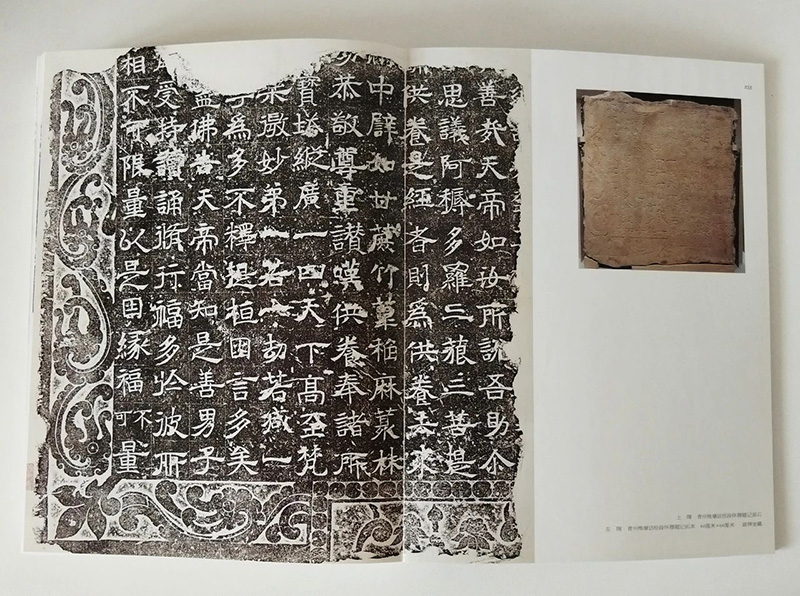 善哉天帝如汝所説吾助尒
思議阿耨多羅三藐三菩提
供養是經者則爲供養去來
中譬如甘蔗竹葦稻麻叢林
恭敬尊重讃嘆供養奉諸所
寶塔縱廣一四天下高至梵
微妙弟一若一劫若減一
爲多不釋提桓因言多矣
佛告天帝當知是善男子
受持讀誦脩行福多於彼所
相不可限量以是因緣福不可量